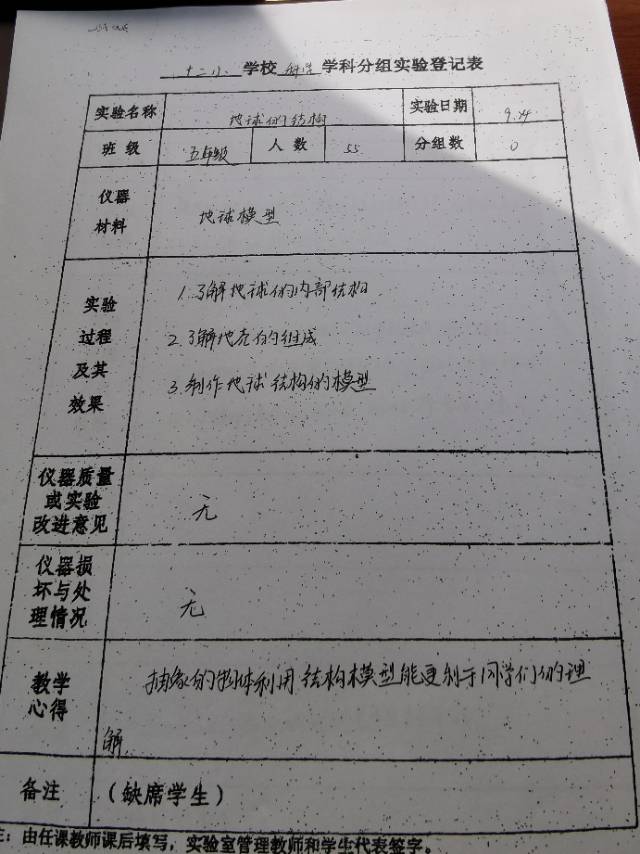 十二小 学校 科学 学科分组实验登记表
实验名称 地球的结构 实验日期 9.24
班 级 五年级 人 数 55 分组数 0
仪器
材料
地球模型
实验
过程
及其
效果
1.了解地球的内部结构
2.了解地壳的组成
3.制作地球结构的模型
仪器质量
或实验
改进意见
无
仪器损
坏与处
理情况
无
教学
心得
抽象的物体利用结构模型能更利于同学们的理
解
备注 （缺席学生）
注：由任课教师课后填写，实验室管理教师和学生代表签字。